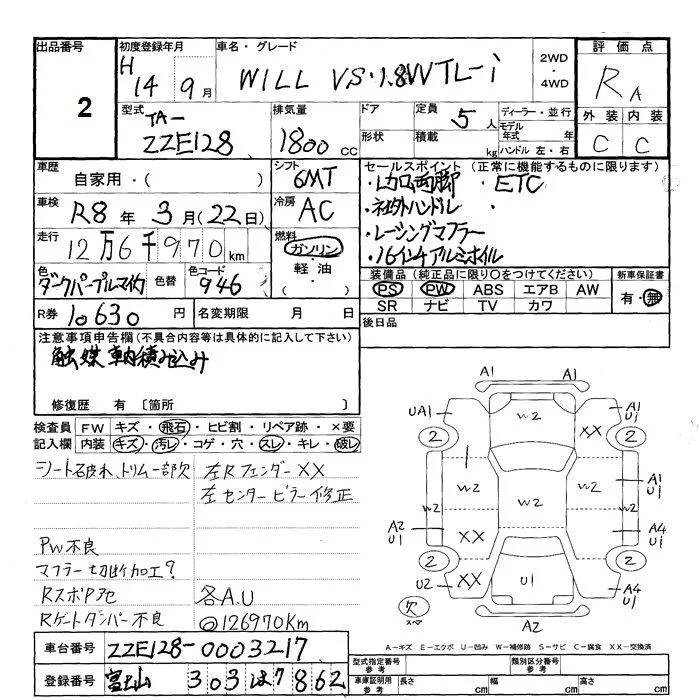 出品番号
2
初度登録年月
H 14年 9月
車名・グレード
WILL VS・1.8VVTL-i
2WD
・
4WD
評価点
RA
型式
TA-
ZZE128
排気量
1800 CC
ドア
形状
定員 5 人
積載 kg
ディーラー・並行
モデル年式 年
ハンドル 左・右
外装 内装
C C
車歴
自家用・( )
シフト
6MT
セールスポイント(正常に機能するものに限ります)
・レカロ両脚 ・ETC
・社外ハンドル
・レーシングマフラー
・16インチアルミホイル
車検
R8年 3月(22日)
冷房
AC
走行
12万6千970km
燃料
ガソリン
・
軽油
・
色
ダークパープルマイカ
色替
色コード
946
装備品(純正品に限り○をつけてください)
PS PW ABS エアB AW
SR ナビ TV カワ
新車保証書
有・無
R券 10630円
名変期限 月 日
後日品
注意事項申告欄(不具合内容等は具体的に記入して下さい)
触媒車内積み込み
修復歴 有 〔箇所 〕
検査員 FW キズ・飛石・ヒビ割・リペア跡・×要
記入欄 内装 キズ・汚レ・コゲ・穴・スレ・キレ・破レ
シート破れ、トリム一部欠
左Rフェンダー XX
左センターピラー修正
PW不良
マフラー切断加工?
RスポPアセ
Rゲートダンパー不良
各A.U
◎126970Km
A1
A1
UA1
W2
XX
A1
U1
2
2
W2
W2
W2
W2
W2
A1
U1
A2
U1
XX
A4
U1
2
2
U2
XX
U1
A4
U1
欠
スペア
A2
A−キズ E−エクボ U−凹み W−補修跡 S−サビ C−腐食 XX−交換済
車台番号 ZZE128-0003217
登録番号 富士山 303 は 7862
型式指定番号
参考
類別区分番号
参考
車庫証明用
参考
長さ cm
幅 cm
高さ cm